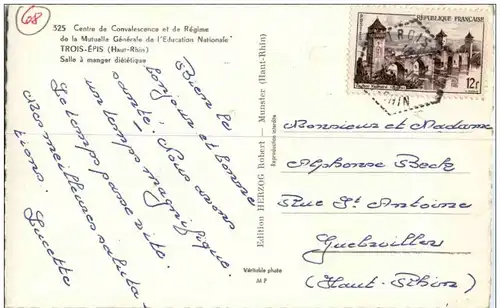 68
325 Centre de Convalescence et de Régime
de la Mutuelle Générale de l'Education Nationale
TROIS-ÉPIS (Haut-Rhin)
Salle à manger diététique
Bien le
bonjour et bonne
santé. Nous avons
un temps magnifique.
Le temps passe vite.
Mes meilleures saluta-
tions. Lucette
Edition HERZOG Robert — Munster (Haut-Rhin)
Reproduction interdite
Véritable photo
M P
RÉPUBLIQUE FRANÇAISE
12f
Monsieur et Madame
Alphonse Beck
Rue St Antoine
Guebwiller
(Haut-Rhin)